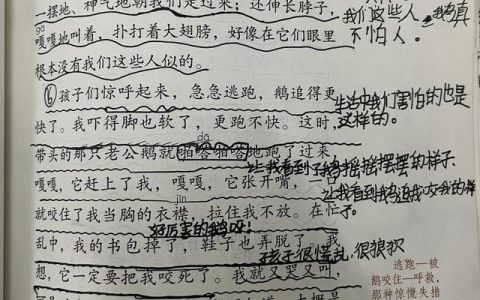 一摆地、神气地朝我们走过来；还伸长脖子，
我们这些人
真
gā
嘎嘎地叫着，扑打着大翅膀，好像在它们眼里
不怕人。
根本没有我们这些人似的。
⑥孩子们惊呼起来，急急逃跑，鹅追得更
生活中我们害怕的也是
快了。我吓得脚也软了，更跑不快。这时，
这样的。
dā
带头的那只老公鹅就啪嗒啪嗒地跑了过来，
让我看到了鹅摇摇摆摆的样子
嘎嘎，它赶上了我，嘎嘎，它张开嘴，一
让我看到鹅追我咬我的样
jīn
就咬住了我当胸的衣襟，拉住我不放。在忙
子
好厉害的鹅呀！
乱中，我的书包掉了，鞋子也弄脱了，我
孩子很慌乱，很狼狈
想，它一定要把我咬死了。我就又哭又叫，
逃跑—被
鹅咬住—呼救，
那种惊慌失措